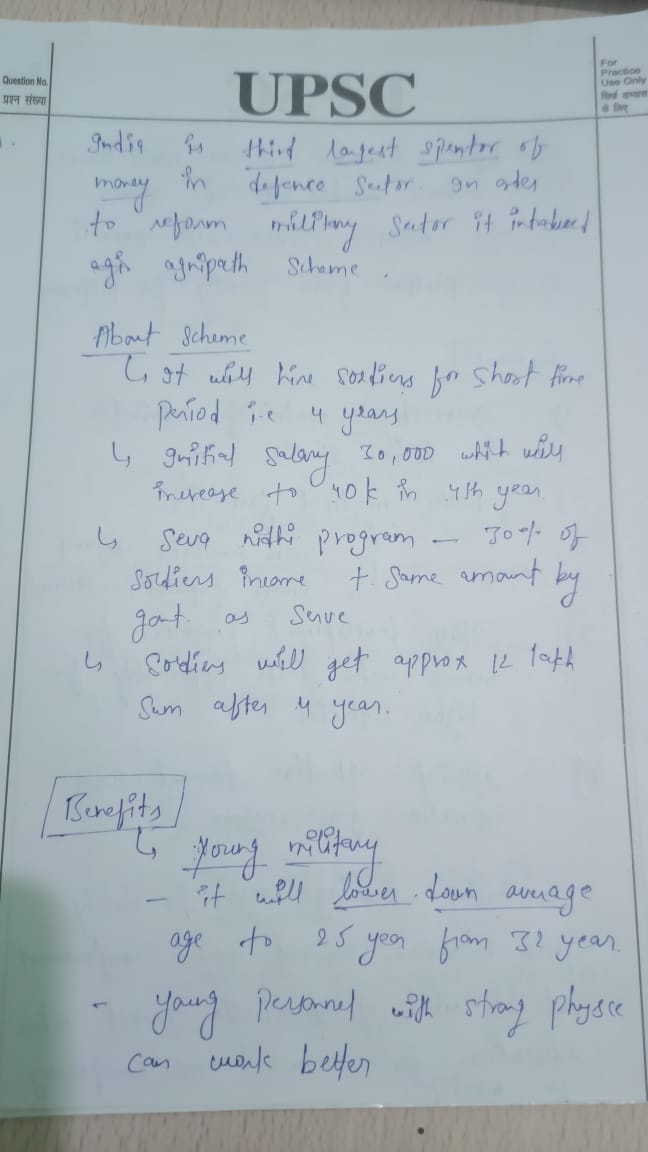 Question No.
प्रश्न संख्या
UPSC
For
Practice
Use Only
सिर्फ अभ्यास
के लिए
India is third largest spentor of
money in defence sector. In order
to reform military sector it introduced
agni agnipath scheme.
About scheme
↳ It will hire soldiers for short time
period i.e 4 years
↳ Initial salary 30,000 which will
increase to 40k in 4th year
↳ Seva nidhi program – 30% of
soldiers income + same amount by
govt. as serve
↳ Soldiers will get approx 12 lakh
sum after 4 year.
Benefits
↳ young military
– it will lower down average
age to 25 year from 32 year.
– young personnel with strong physce
can work better